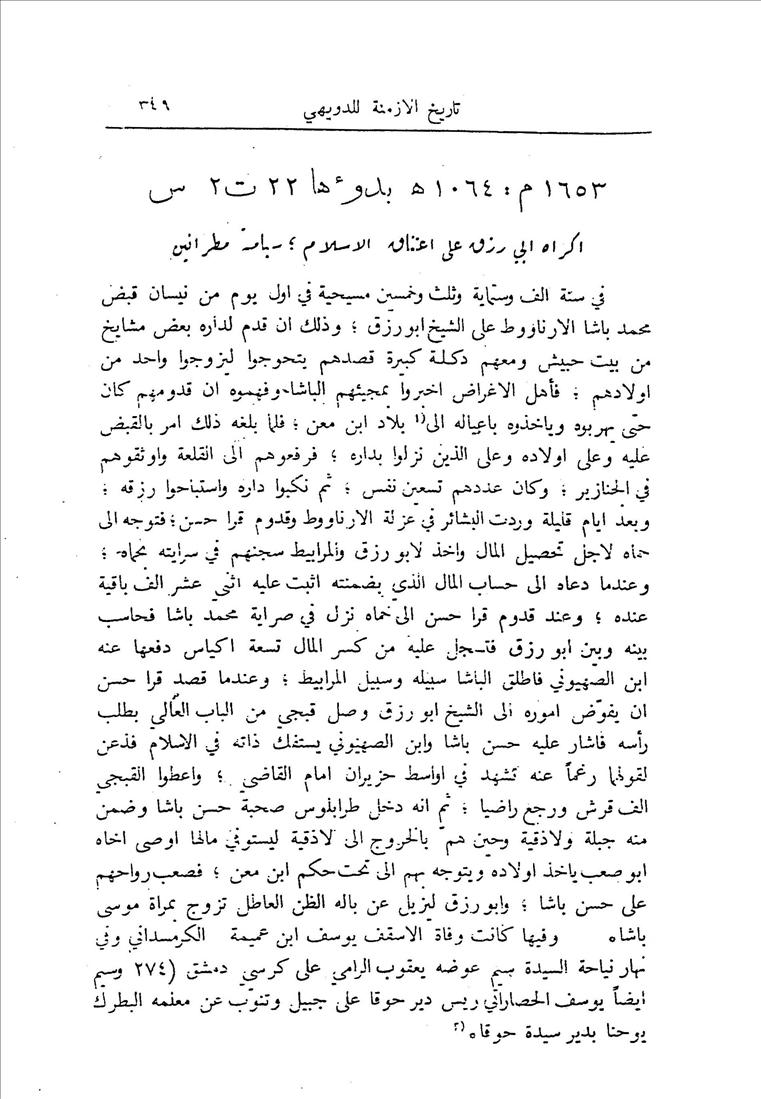 تاريخ الازمنة للدويهي ٣٤٩
١٦٥٣ م : ١٠٦٤ ه بدوءها ٢٢ ت٢ س
اكراه ابي رزق على اعتناق الاسلام ؛ سيامة مطرانين
في سنة الف وستماية وثلث وخمسين مسيحية في اول يوم من نيسان قبض
محمد باشا الارناووط على الشيخ ابو رزق ؛ وذلك ان قدم لداره بعض مشايخ
من بيت حبيش ومعهم دكلة كبيرة قصدهم يتحوجوا ليزوجوا واحد من
اولادهم ؛ فأهل الاغراض اخبروا بمجيئهم الباشا وفهموه ان قدومهم كان
حتى يهربوه وياخذوه باعياله الى(١ بلاد ابن معن ؛ فلما بلغه ذلك امر بالقبض
عليه وعلى اولاده وعلى الذين نزلوا بداره ؛ فرفعوهم الى القلعة واوثقوهم
في الجنازير ؛ وكان عددهم تسعين نفس ؛ ثم نكبوا داره واستباحوا رزقه ؛
وبعد ايام قليلة وردت البشائر في عزلة الارناووط وقدوم قرا حسن ؛ فتوجه الى
حماه لاجل تحصيل المال واخذ لابو رزق والمرابيط سجنهم في سرايته بحماه ؛
وعندما دعاه الى حساب المال الذي بضمنته اثبت عليه اثني عشر الف باقية
عنده ؛ وعند قدوم قرا حسن الى حماه نزل في صراية محمد باشا فحاسب
بينه وبين ابو رزق فتسجل عليه من كسر المال تسعة اكياس دفعها عنه
ابن الصهيوني فاطلق الباشا سبيله وسبيل المرابيط ؛ وعندما قصد قرا حسن
ان يفوّض اموره الى الشيخ ابو رزق وصل قبجي من الباب العالي بطلب
رأسه فاشار عليه حسن باشا وابن الصهيوني يستفك ذاته في الاسلام فذعن
لقولهما رغماً عنه تشهد في اواسط حزيران امام القاضي ؛ واعطوا القبجي
الف قرش ورجع راضيا ؛ ثم انه دخل طرابلوس صحبة حسن باشا وضمن
منه جبلة ولاذقية وحين همّ بالخروج الى لاذقية ليستوفي مالها اوصى اخاه
ابو صعب ياخذ اولاده ويتوجه بهم الى تحت حكم ابن معن ؛ فصعب رواحهم
على حسن باشا ؛ وابو رزق ليزيل عن باله الظن العاطل تزوج بمراة موسى
باشا ه وفيها كانت وفاة الاسقف يوسف ابن عميمة الكرمسداني وفي
نهار نياحة السيدة سيم عوضه يعقوب الرامي على كرسي دمشق (٢٧٤ وسيم
ايضاً يوسف الحصاراتي ريس دير حوقا على جبيل وتنوّب عن معلمه البطرك
يوحنا بدير سيدة حوقا ه(٢